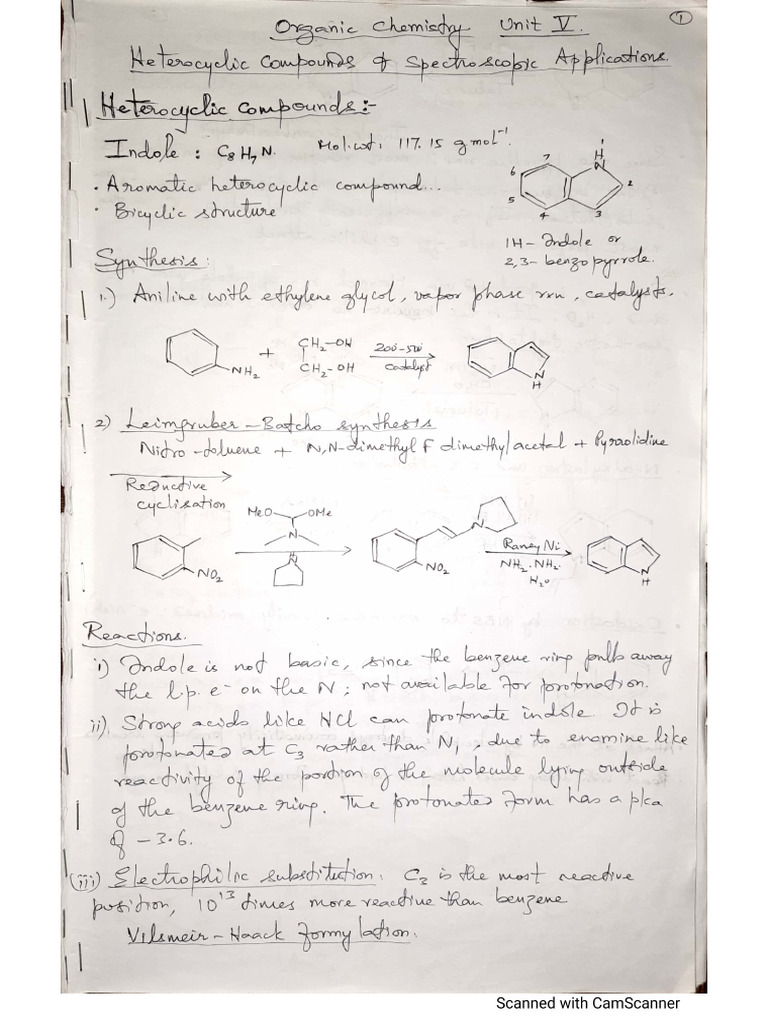 ①
Organic Chemistry Unit V.
Heterocyclic Compounds & Spectroscopic Applications.
Heterocyclic Compounds:-
Indole : C8H7N. Mol.wt: 117.15 g mol-1.
• Aromatic heterocyclic compound...
• Bicyclic structure
1
H
N
7
6
5
4
3
2
1H- Indole or
2,3- benzopyrrole.
Synthesis:
1.) Aniline with ethylene glycol, vapor phase rxn, catalysts.
NH2 + CH2-OH
CH2-OH
200-500
catalyst
N
H
2) Leimgruber-Batcho synthesis
Nitro-toluene + N,N-dimethyl F dimethylacetal + Pyrrolidine
Reductive
cyclisation
MeO OMe
N
N
NO2
N
NO2
Raney Ni
NH2.NH2
H2O
N
H
Reactions.
i) Indole is not basic, since the benzene ring pulls away
the l.p. e- on the N; not available for protonation.
ii) Strong acids like HCl can protonate indole. It is
protonated at C3 rather than N1, due to enamine like
reactivity of the portion of the molecule lying outside
of the benzene ring. The protonated form has a pka
of -3.6.
(iii) Electrophilic substitution: C3 is the most reactive
position, 10^13 times more reactive than benzene
Vilsmeir-Haack formylation.
Scanned with CamScanner